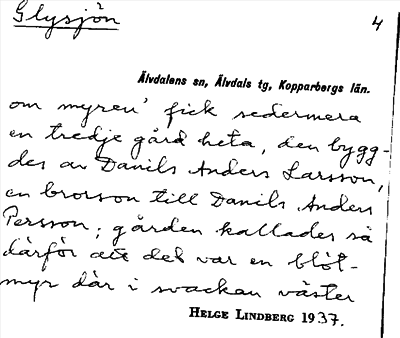 Glysjön
4
Älvdalens sn, Älvdals tg, Kopparbergs län.
om myren' fick sedermera
en tredje gård heta, den bygg-
des av Danils Anders Larsson,
en brorson till Danils Anders
Persson; gården kallades så
därför att det var en blöt-
myr där i svackan väster
HELGE LINDBERG 1937.